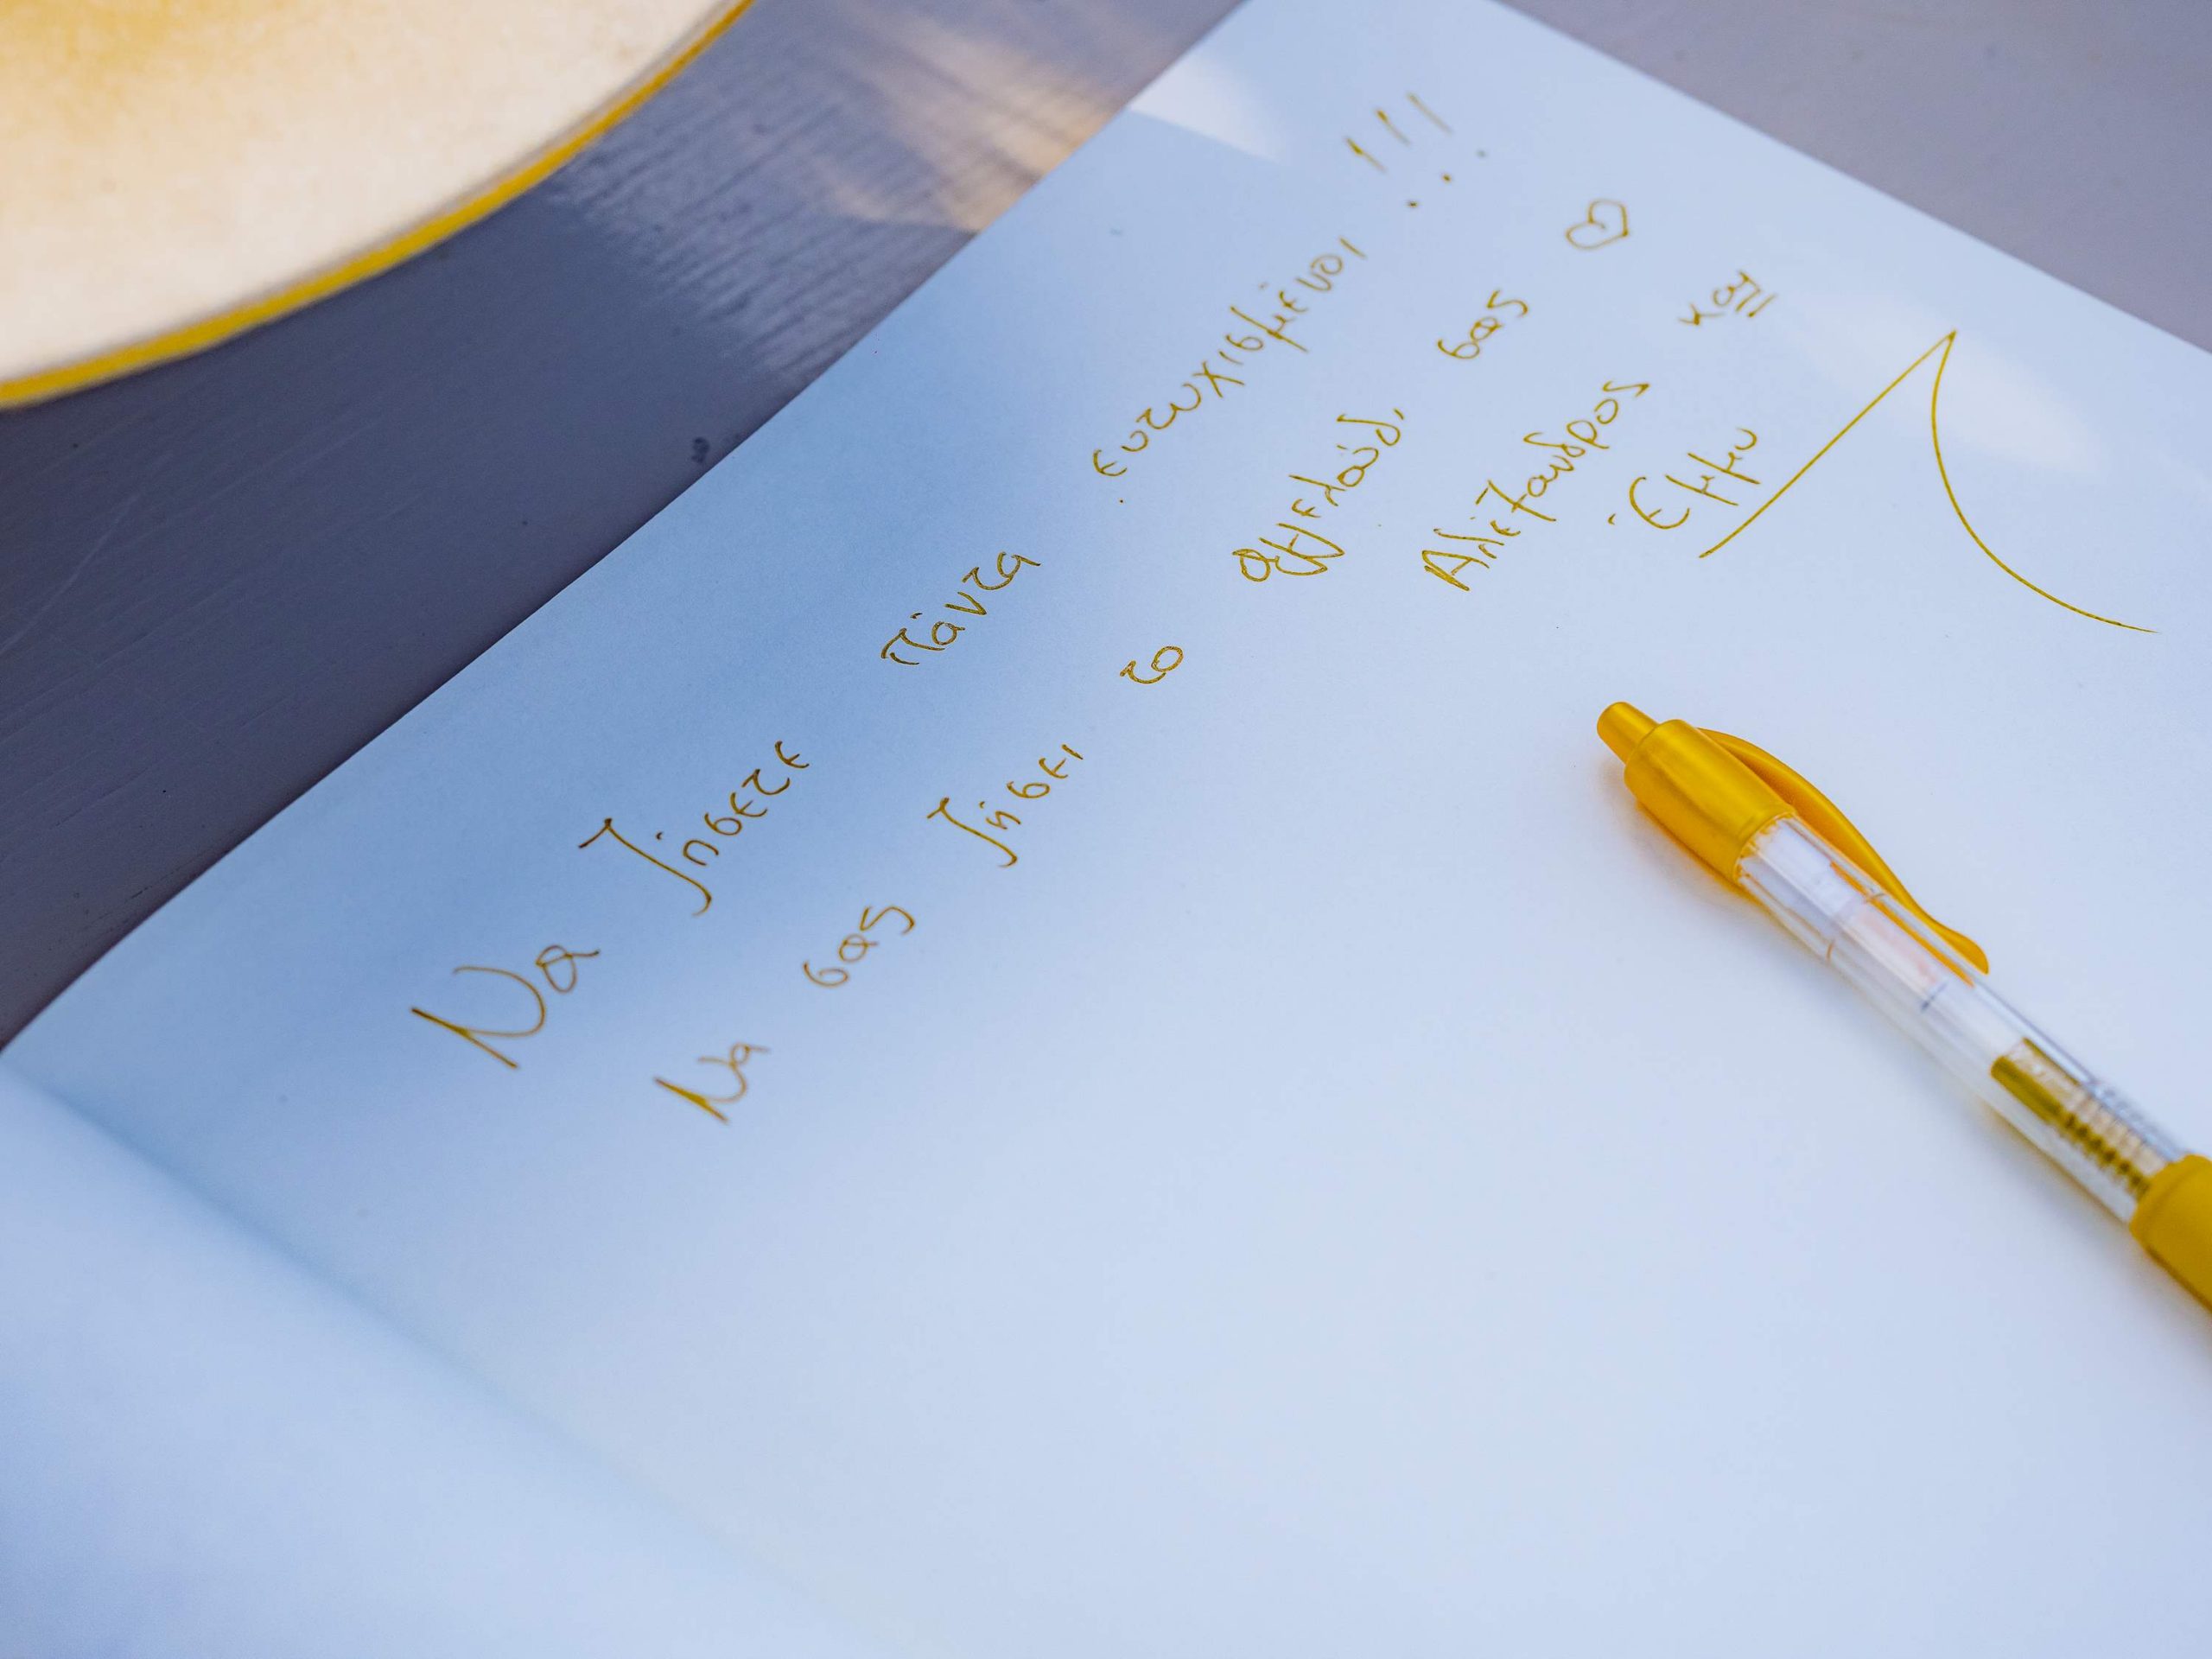 Να ζήσετε πάντα ευτυχισμένοι !!!
Να σας ζήσει το αγγελούδι σας ♡
Αλέξανδρος και
Έμμυ